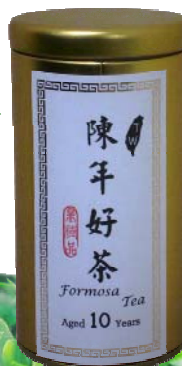 TW
陳年好茶
Formosa
Tea
Aged 10 Years